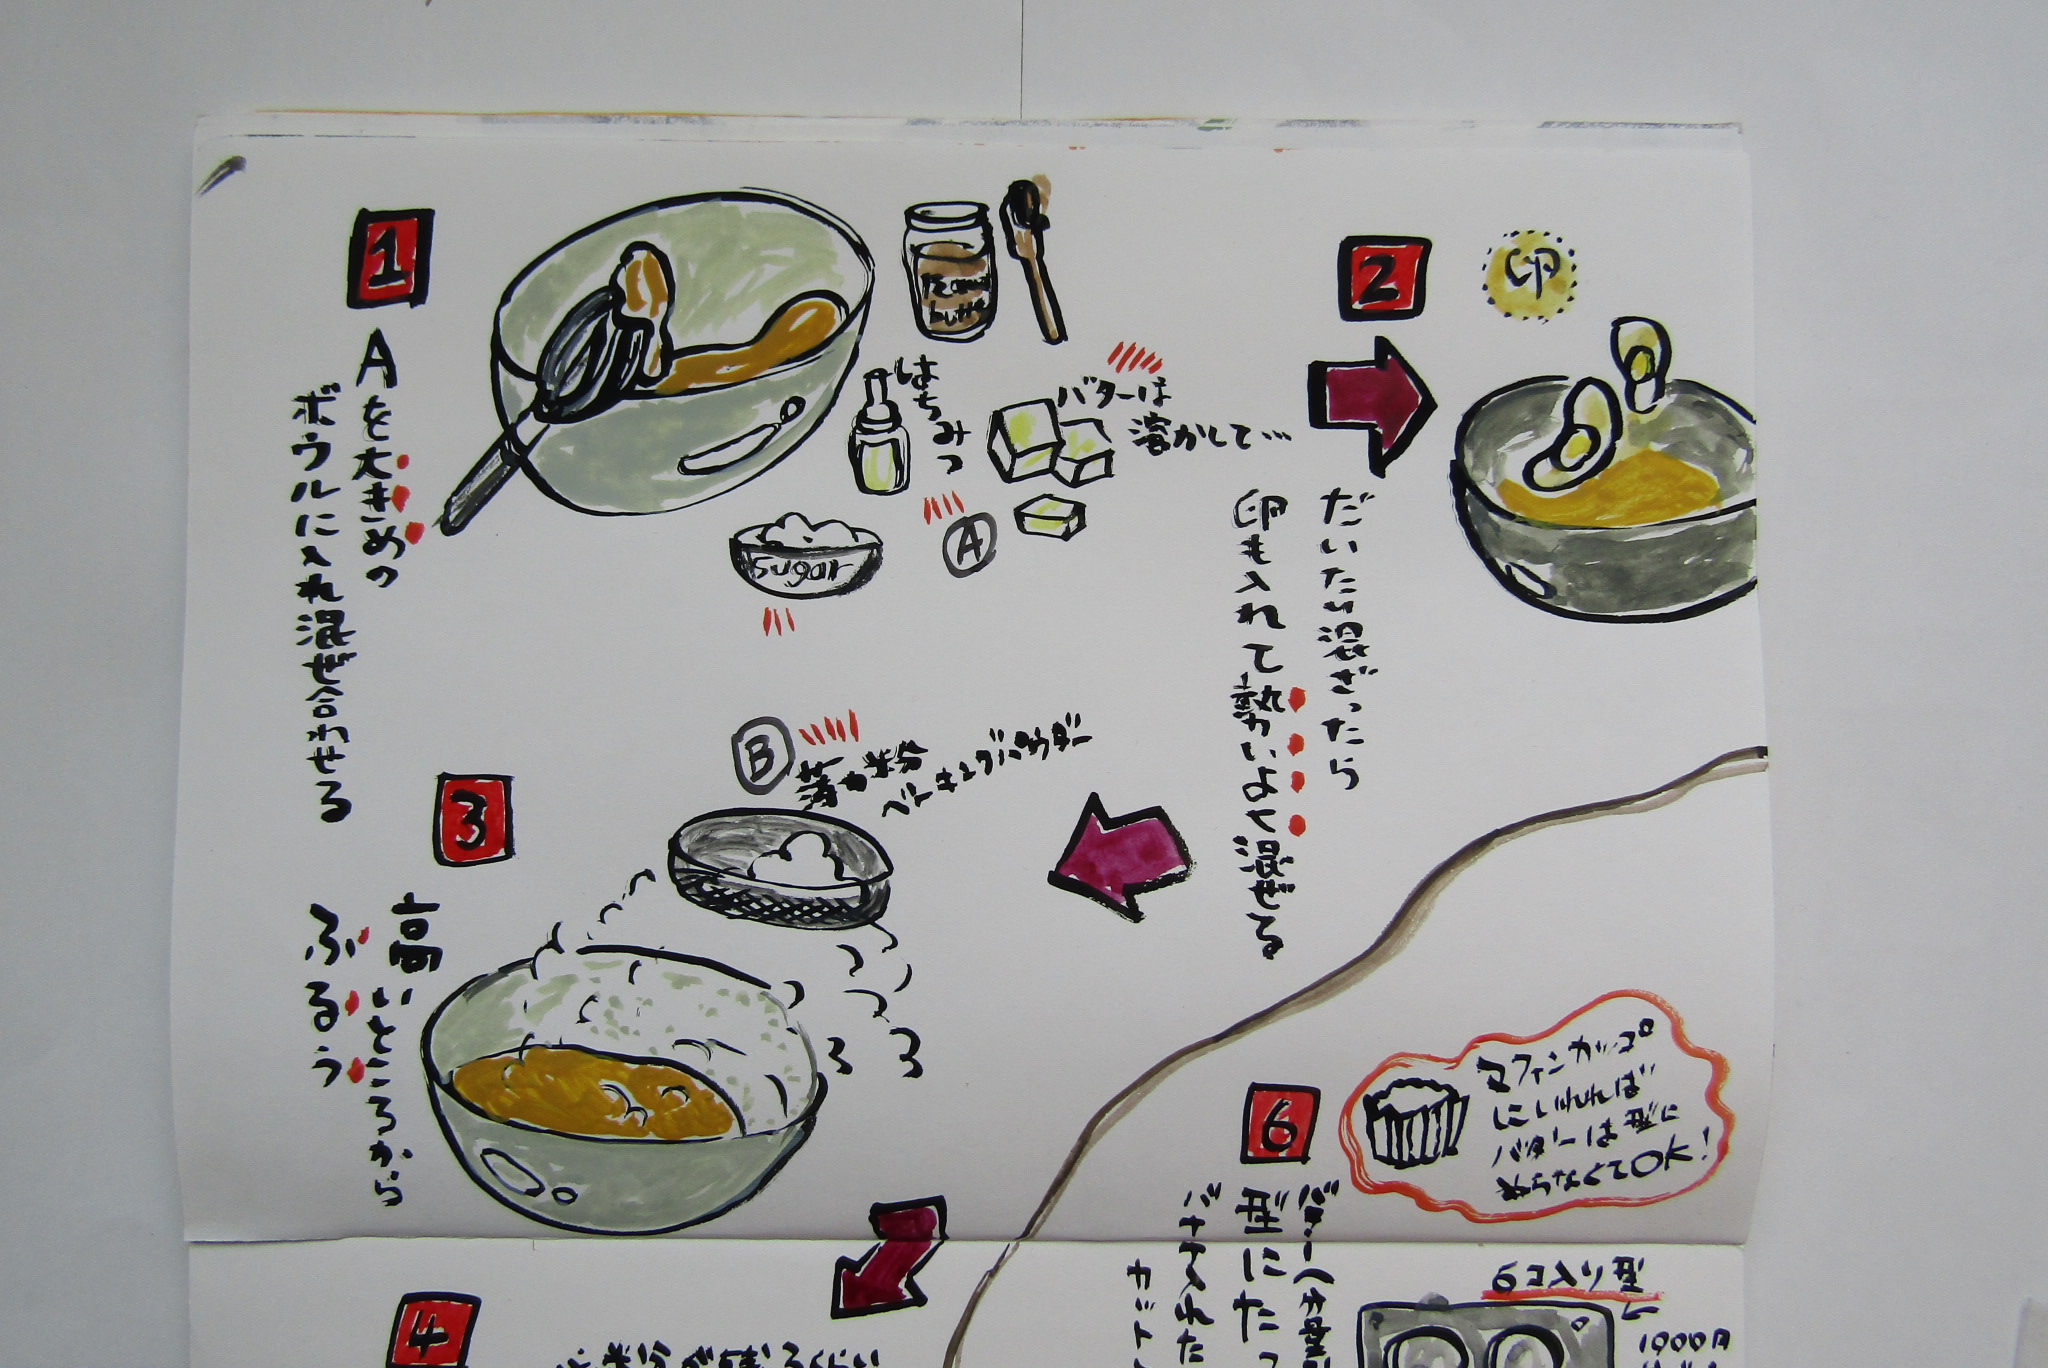 1
Aを大きめの
ボウルに入れ混ぜ合わせる
Peanut
butte
はちみつ
バターは
溶かして…
sugar
A
2
卵
だいたい混ざったら
卵も入れて勢いよく混ぜる
B
薄力粉
ベーキングパウダー
3
高いところから
ふるう
6
マフィンカップ
にいれれば
バターは型に
ぬらなくてOK!
バター(分量
型にたっ
バナナ入れた
カット
6コ入り型
1000円
4
粉が残るくらい